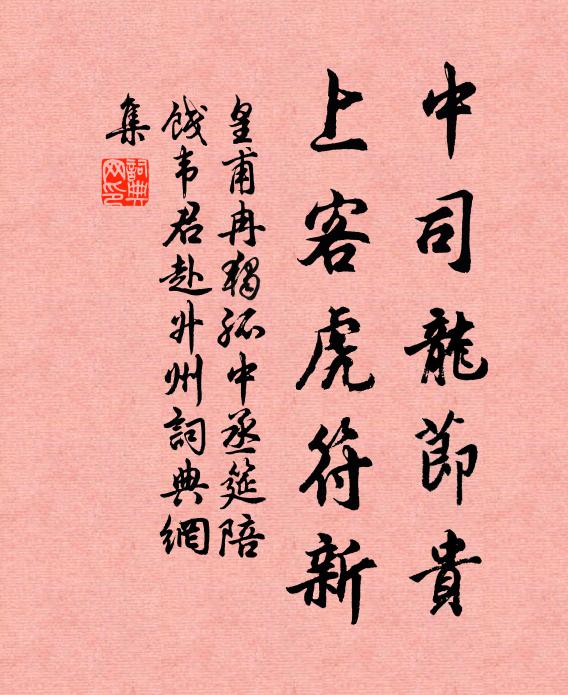 中司龍節貴
上客虎符新
皇甫冉獨孤中丞筵陪
餞韦君赴升州詞典網
集
詞典網印